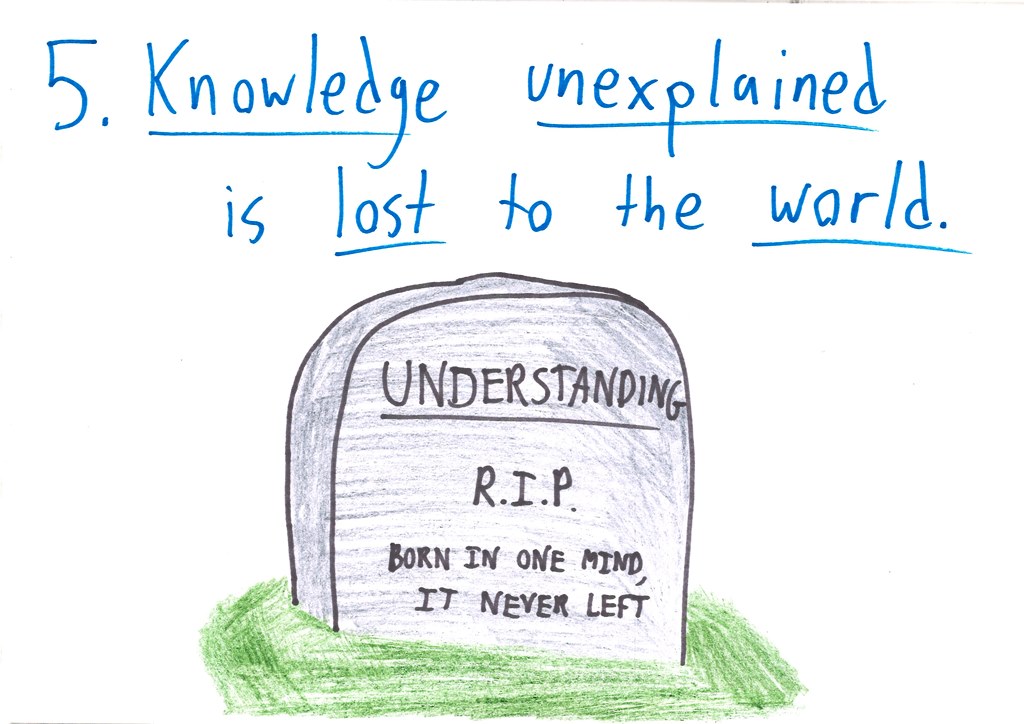 5. Knowledge unexplained
is lost to the world.
UNDERSTANDING
R.I.P.
BORN IN ONE MIND,
IT NEVER LEFT